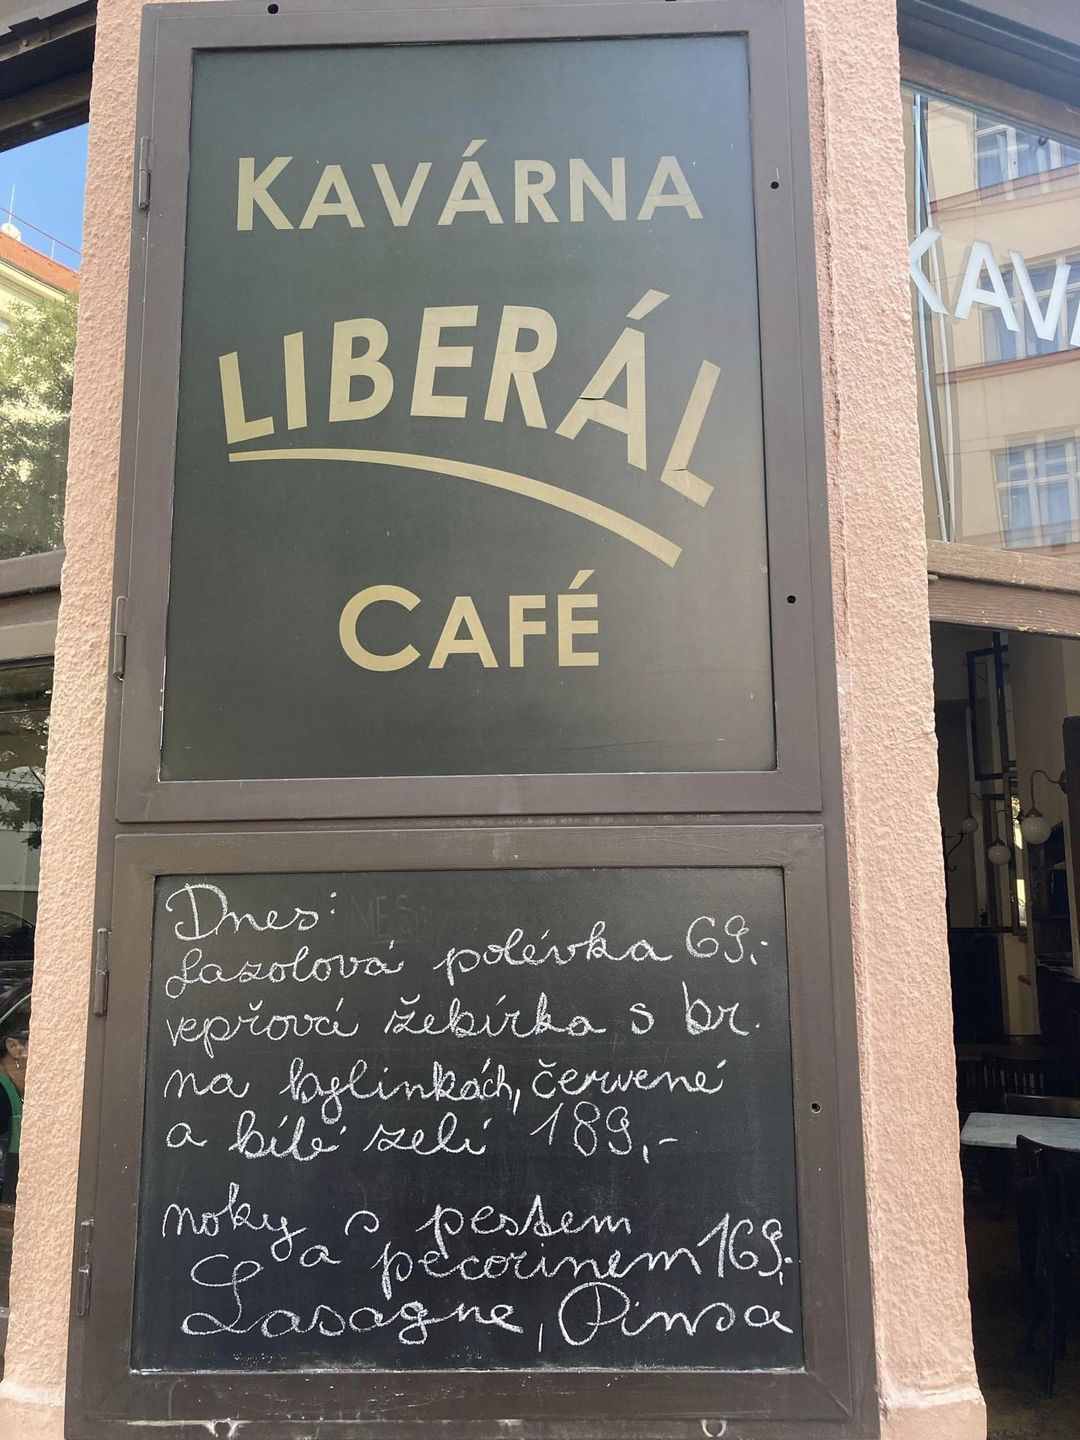 KAVÁRNA
LIBERÁL
CAFÉ
KAVÁ
Dnes:
fazolová polévka 69,-
vepřová žebírka s br.
na bylinkách, červené
a bílé zelí 189,-
noky s pestem
a pecorinem 169,-
Lasagne, Pinsa